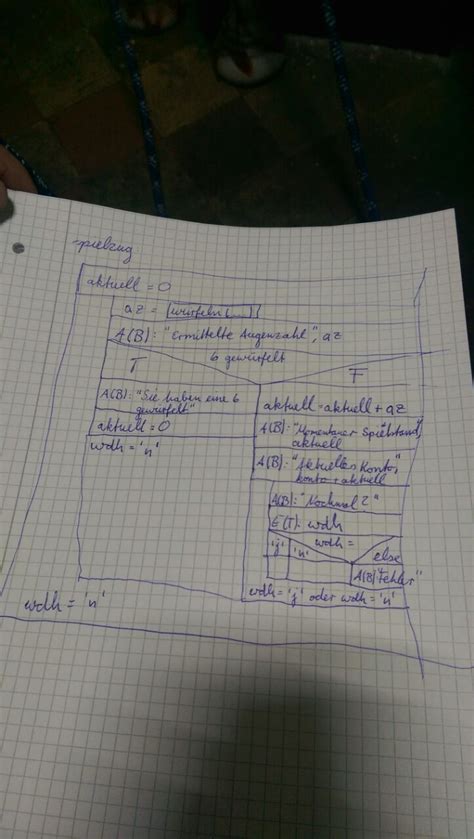 spielzug
aktuell = 0
az = würfeln()
A(B): "Ermittelte Augenzahl", az
6 gewürfelt
T
F
A(B): "Sie haben eine 6
gewürfelt"
aktuell = 0
wdh = 'n'
aktuell = aktuell + az
A(B): "Momentaner Spielstand",
aktuell
A(B): "Aktuelles Konto",
konto + aktuell
A(B): "Nochmal?"
E(T): wdh
wdh =
'j'
'n'
else
A(B) "Fehler"
wdh = 'j' oder wdh = 'n'
wdh = 'n'